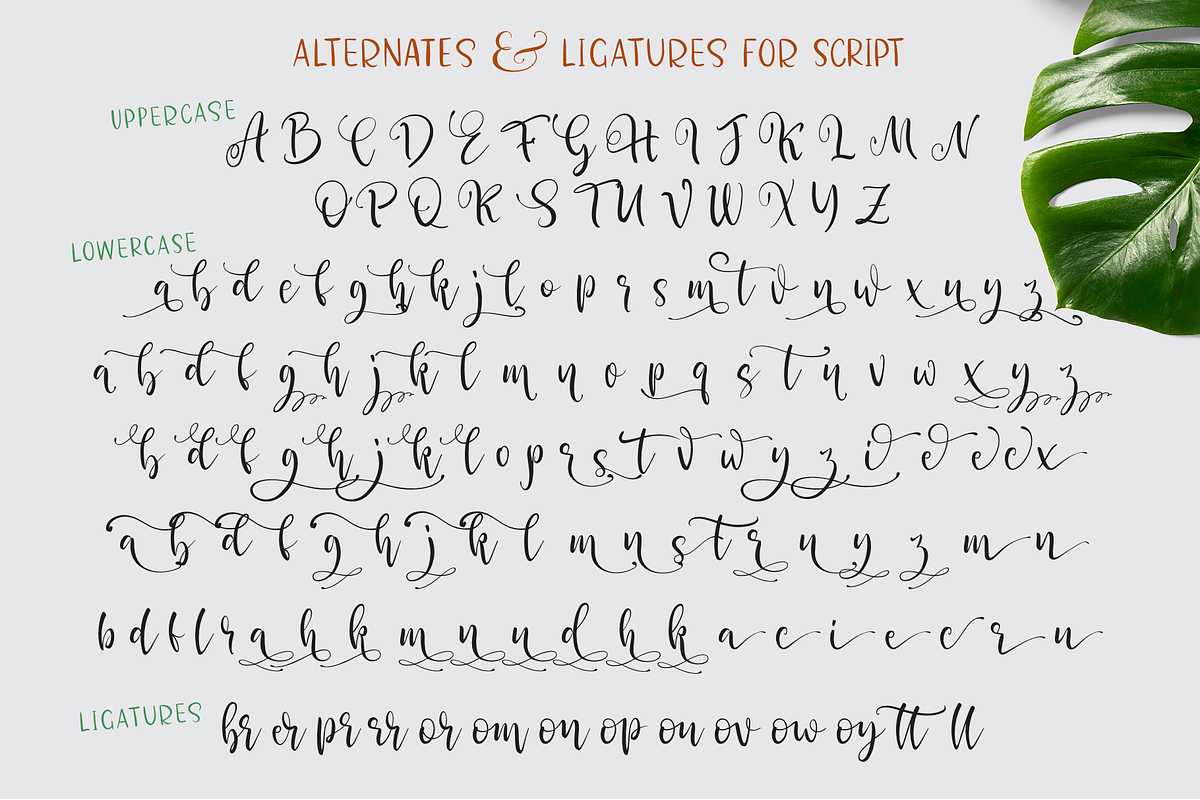 ALTERNATES & LIGATURES FOR SCRIPT
UPPERCASE
A B C D E F G H I J K L M N
O P Q R S T U V W X Y Z
LOWERCASE
a b d e f g h k j l o p r s m t v n w x u y z
a b d f g h j k l m n o p q s t u v w x y z
b d f g h j k l o p r s t v w y z i v v x
a b d f g h j k l m n s t r u y z m n
b d f l r a h k m n u d h k a c i e c r u
LIGATURES
br er pr rr or om on op ou ov ow oy tt ll